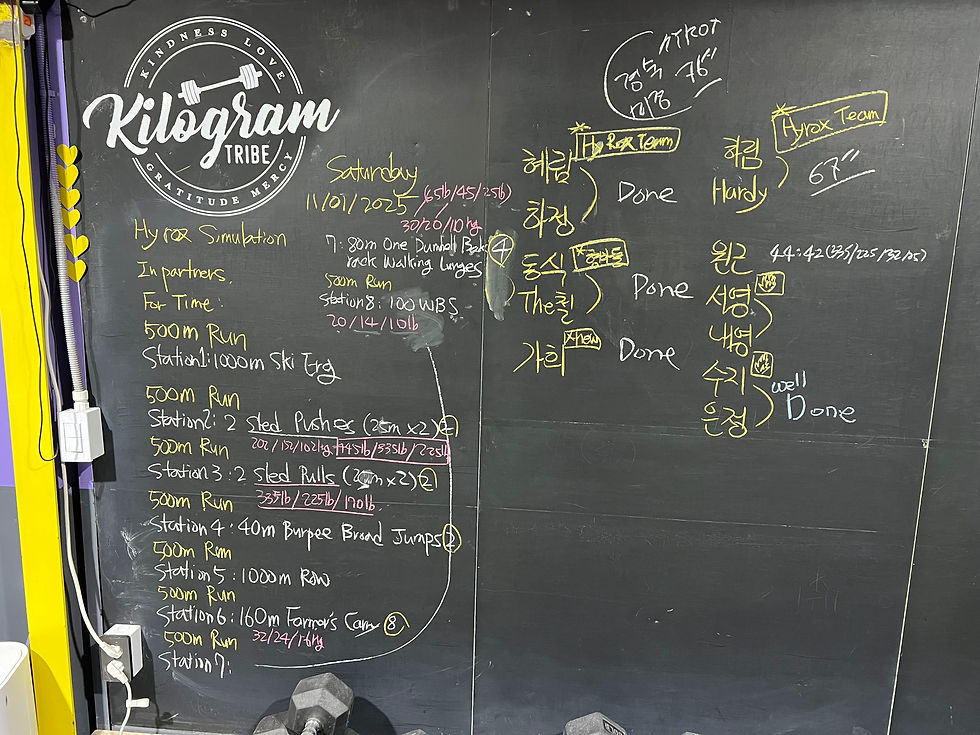 KINDNESS LOVE
Kilogram
TRIBE
GRATITUDE MERCY
Saturday
11/01/2025
Hyrox Simulation
In partners,
For Time:
500m Run
Station1: 1000m Ski Erg
500m Run
Station2: 2 Sled Pushes (25m x2) 2
500m Run
202/152/102kg 445lb/335lb/225lb
Station 3: 2 Sled Pulls (25m x2) 2
500m Run
335lb/225lb/170lb
Station 4: 40m Burpee Broad Jumps 2
500m Run
Station 5: 1000m Row
500m Run
Station 6: 160m Farmer's Carry 8
500m Run
32/24/16kg
Station 7:
(65lb/45/25lb)
30/20/10kg
7: 80m One Dumbell Back 4
rack Walking Lunges
500m Run
Station 8: 100 WBS
20/14/10lb
미정
Hyrox Team
혜람
하정
Done
동식
The철
Done
가희
Done
Hyrox Team
하림
Hardy
67"
원근
44:42 (335/225/132/105)
서영
내영
수지
은정
well
Done